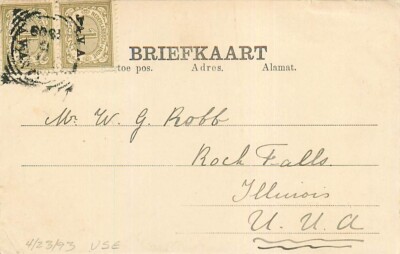 BRIEFKAART
toe pos. Adres. Alamat.
Mr. W. G. Robb
Rock Falls
Illinois
U. U. A
4/23/93 USE